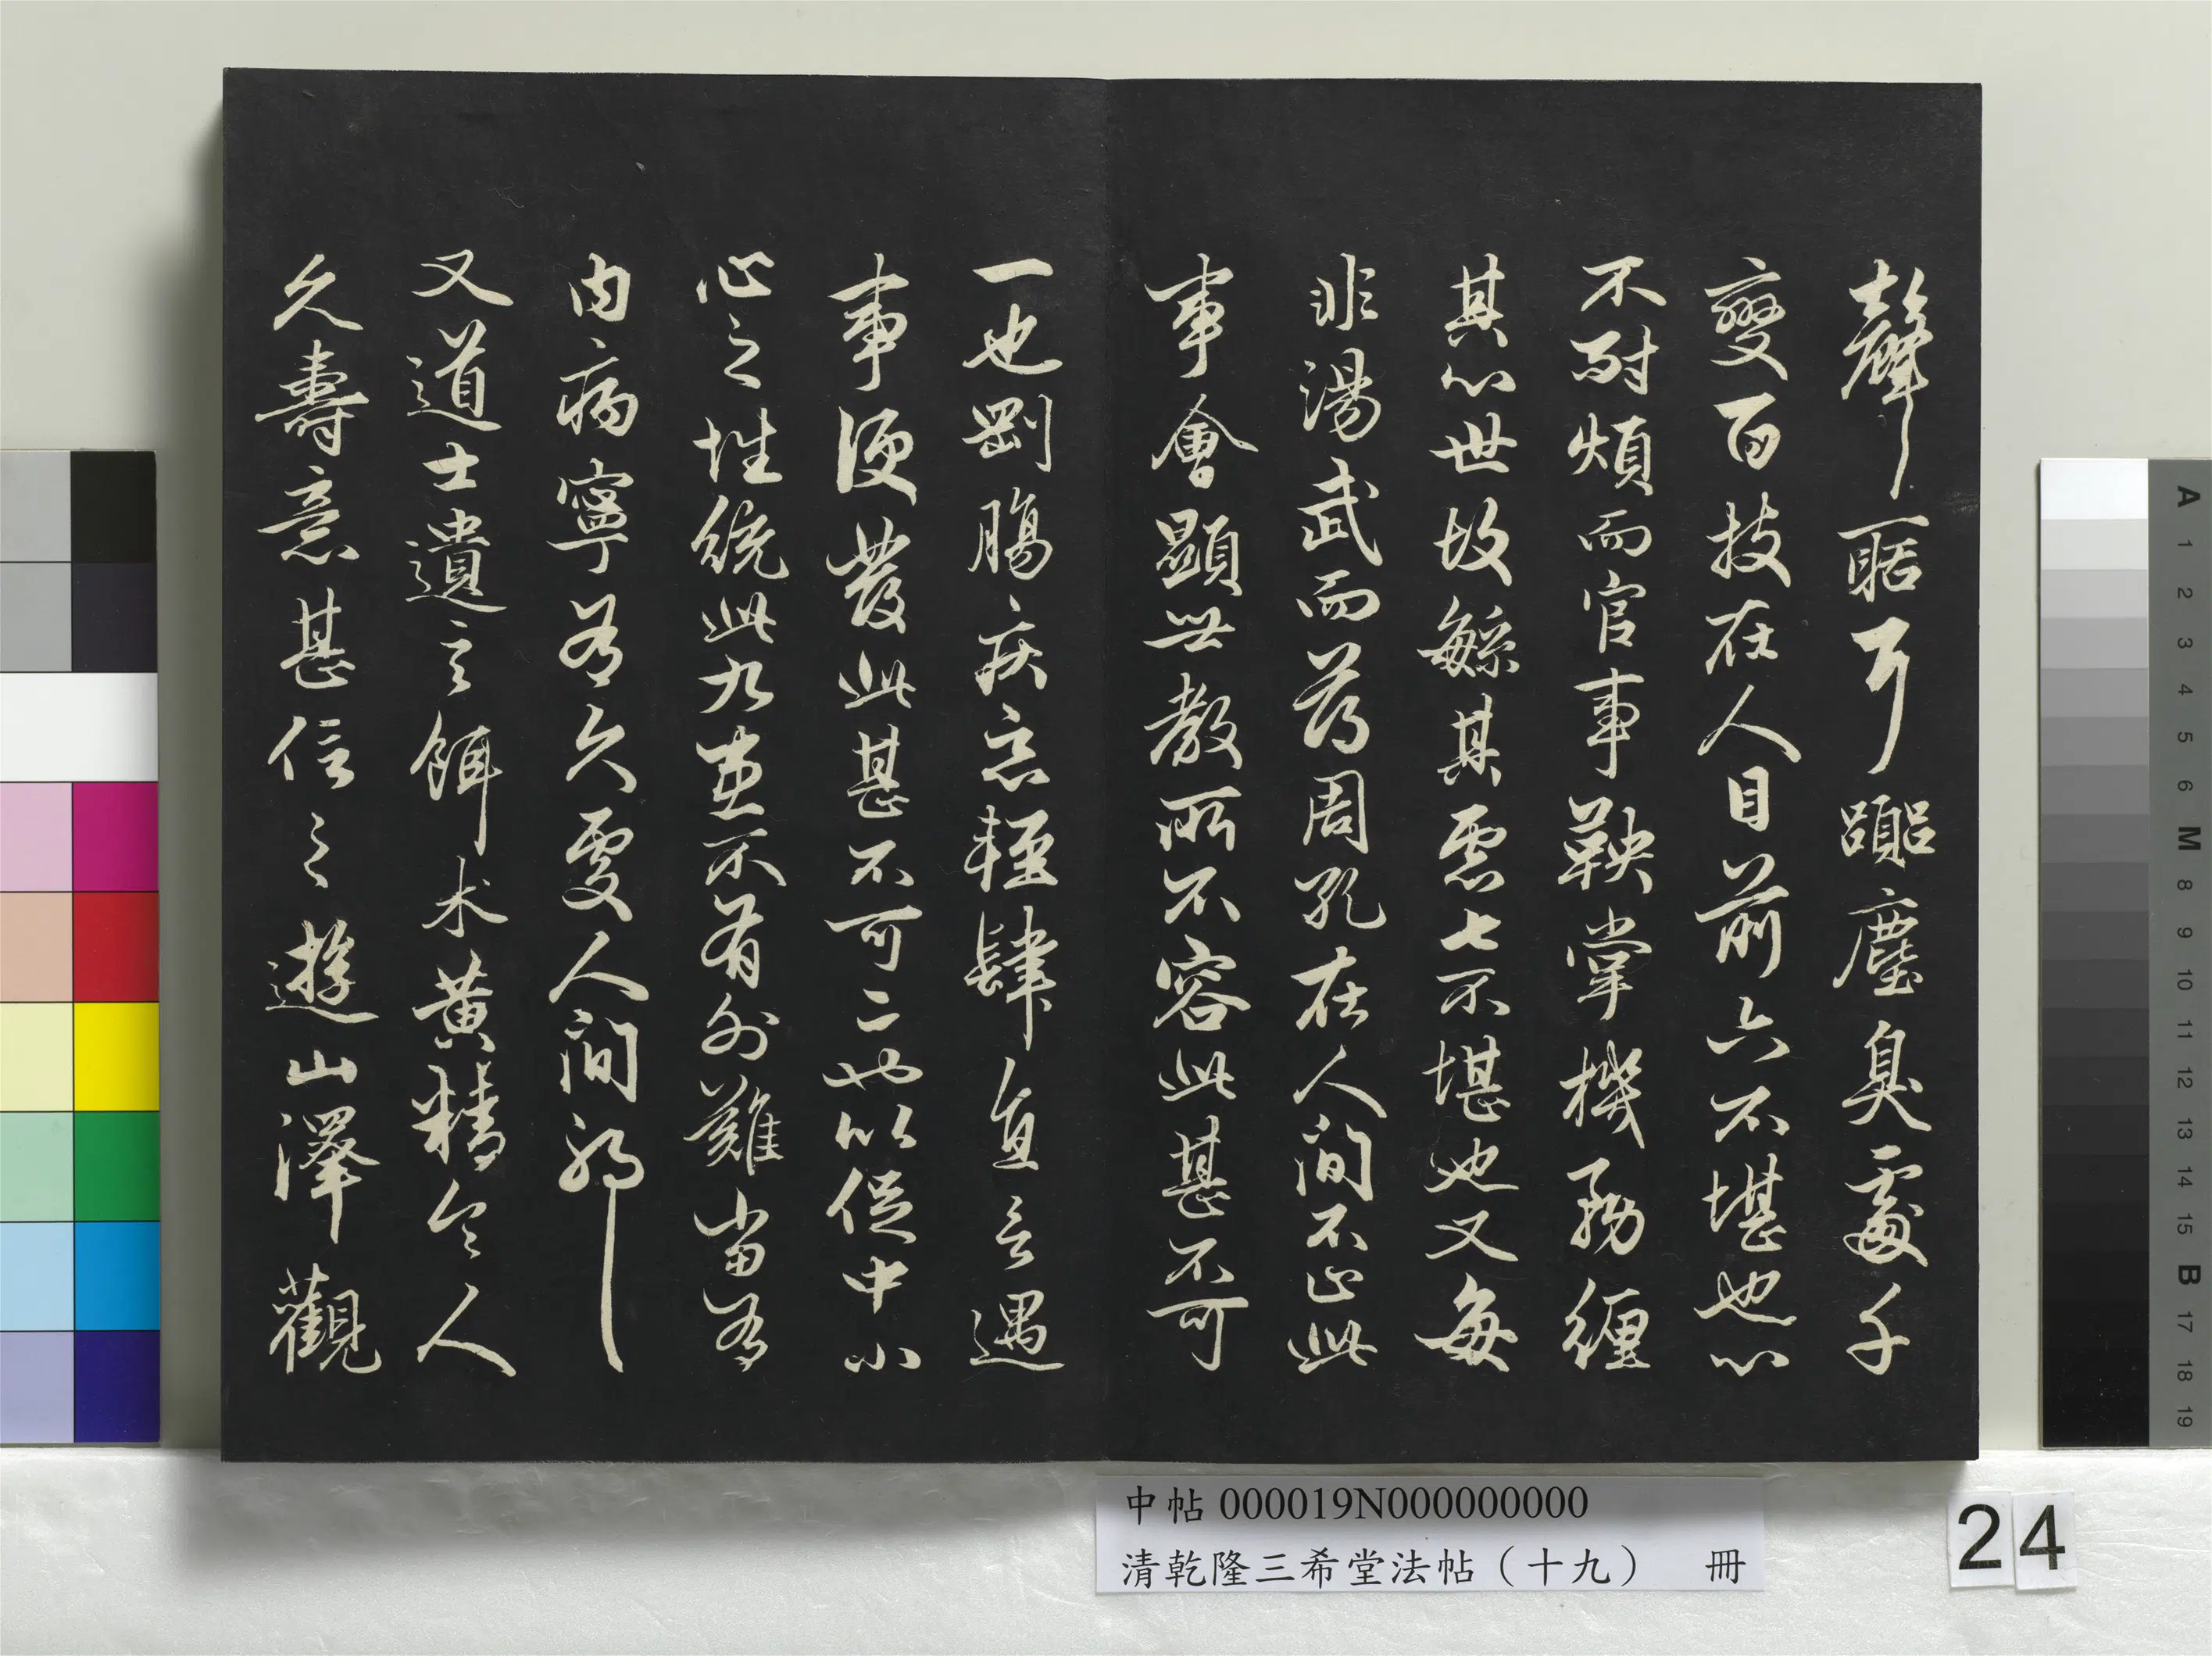 聲聒耳囂塵臭處千
變百技在人目前六不堪也心
不耐煩而官事鞅掌機務纏
其心世故繁其慮七不堪也又每
非湯武而薄周孔在人間不止此
事會顯世教所不容此甚不可
一也剛腸疾惡輕肆直言遇
事便發此甚不可二也以促中小
心之性統此九患不有外難當有
內病寧有久處人間邪
又道士遺言餌术黃精令人
久壽意甚信之遊山澤觀
中帖 000019N000000000
清乾隆三希堂法帖（十九） 冊
24
A 1 2 3 4 5 6 M 8 9 10 11 12 13 14 15 B 17 18 19